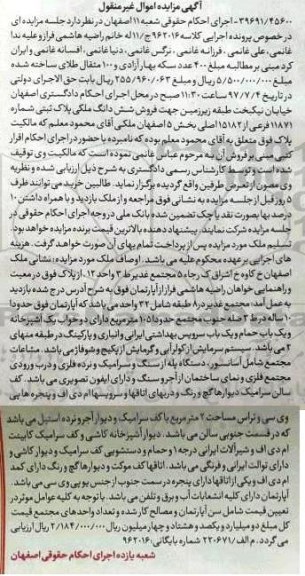 آگهی مزایده اموال غیر منقول
۳۹۶۹۱/۴۵۶۰۰ - اجرای احکام حقوقی شعبه ۱۱ اصفهان در نظر دارد جلسه مزایده ای
در خصوص پرونده اجرایی کلاسه ۹۶۲۰۱۶ ج/۱۱ له خانم راضیه هاشمی فراز و علیه ندا
غانمی، علی غانمی، فرزانه غانمی، نرگس غانمی، دنیا غانمی، افسانه غانمی و ایران
کرد میینی بر مطالبه مبلغ ۴۰۰ عدد سکه بهار آزادی و ۱۰۰ مثقال طلای ساخته شده
و مبلغ ۵/۵۰۰/۰۰۰/۰۰۰ ریال و مبلغ ۲۵۵/۹۶۰/۰۶۳ ریال بابت حق الاجرای دولتی
در تاریخ ۹۷/۷/۴ ساعت ۱۱:۳۰ صبح در محل اجرای احکام دادگستری اصفهان
خیابان نیکبخت طبقه زیرزمین جهت فروش شش دانگ ملکی پلاک ثبتی شماره
۱۱۸۷۱ فرعی از ۱۵۱۸۲ اصلی بخش ۵ اصفهان ملکی آقای محمود معلم که مالکیت
پلاک فوق متعلق به آقای محمود معلم بوده که نامبرده با حضور در اجرای احکام اقرار
کتبی مبنی بر فروش آن به مرحوم عباس غانمی نموده است که مالکیت وی توقیف
شده است و توسط کارشناس رسمی دادگستری به شرح ذیل ارزیابی شده و نظریه
وی مصون از تعرض طرفین واقع گردیده برگزار نماید. طالبین خرید می توانند ظرف
۵ روز قبل از جلسه مزایده به نشانی فوق مراجعه و از ملک بازدید و با همراه داشتن ۱۰
درصد بها بصورت نقد یا چک تضمین شده بانک ملی در وجه اجرای احکام حقوقی در
جلسه مزایده شرکت نمایند. پیشنهاد دهنده بالاترین قیمت برنده مزایده خواهد بود
تسلیم ملک مورد مزایده پس از پرداخت تمام بهای آن صورت خواهد گرفت. هزینه
های اجرایی بر عهده محکوم علیه می باشد. اوصاف ملک مورد مزایده: نشانی ملک
اصفهان خ کاوه خ اشراق ک رجاء ۵ مجتمع غدیر ط ۳ واحد ۱۲، از پلاک فوق در معیت
و راهنمایی خواهان راضیه هاشمی فراز از آپارتمان فوق به شرح آدرس درج شده بازدید
به عمل آمد: مجتمع غدیر در ۸ طبقه شامل ۳۲ واحد می باشد که آپارتمان فوق حدودا
۱۰ ساله در ط ۳ ضلع جنوب مجتمع حدودا ۱۰۵ مترمربع دارای دو خواب یک آشپزخانه
و یک باب حمام و یک باب سرویس بهداشتی ایرانی و انباری و پارکینگ در طبقه منهای
۲ می باشد. سیستم سرمایش از کولر آبی و گرمایش از پکیج و شوفاژ می باشد. مشاعات
مجتمع شامل آسانسور، دستگاه پله از سنگ و سرامیک و نرده فلزی و درب ورودی
مجتمع فلزی و نمای ساختمان از آجر و سنگ و دارای آیفون تصویری می باشد. کف
سالن سرامیک دیوارها گچ و رنگ و دربهای اتاقها و سرویسها ام دی اف و پنجره ها یی
وی سی و تراس مساحت ۲ مترمربع با کف سرامیک و دیوار آجر و نرده استیل می باشد
که در قسمت جنوبی سالن می باشد. دیوار آشپزخانه کاشی و کف سرامیک کابینت
ام دی اف و شیرآلات ایرانی درجه ۱ و حمام و دستشویی کف سرامیک و دیوار کاشی و
دارای توالت ایرانی و فرنگی می باشد. اتاقها کف موکت و دیوارها گچ و رنگ دارای کمد
ام دی اف و یکی از اتاقها دارای پنجره در سمت جنوب از جنس یو پی وی سی می باشد.
آپارتمان دارای کلیه انشعابات آب و برق و تلفن می باشد. با توجه به کلیه عوامل موثر در
تعیین قیمت شامل سن آپارتمان و مصالح کار شده و تعداد واحدهای مجتمع قیمت
کل مبلغ دو میلیارد و یکصد و هشتاد و چهار میلیون ریال ۲/۱۸۴/۰۰۰/۰۰۰ ریال ارزیابی
می گردد. م الف / ۲۲۰۶۷۱ شماره بایگانی: ۹۶۲۰۱۶
شعبه یازده اجرای احکام حقوقی اصفهان